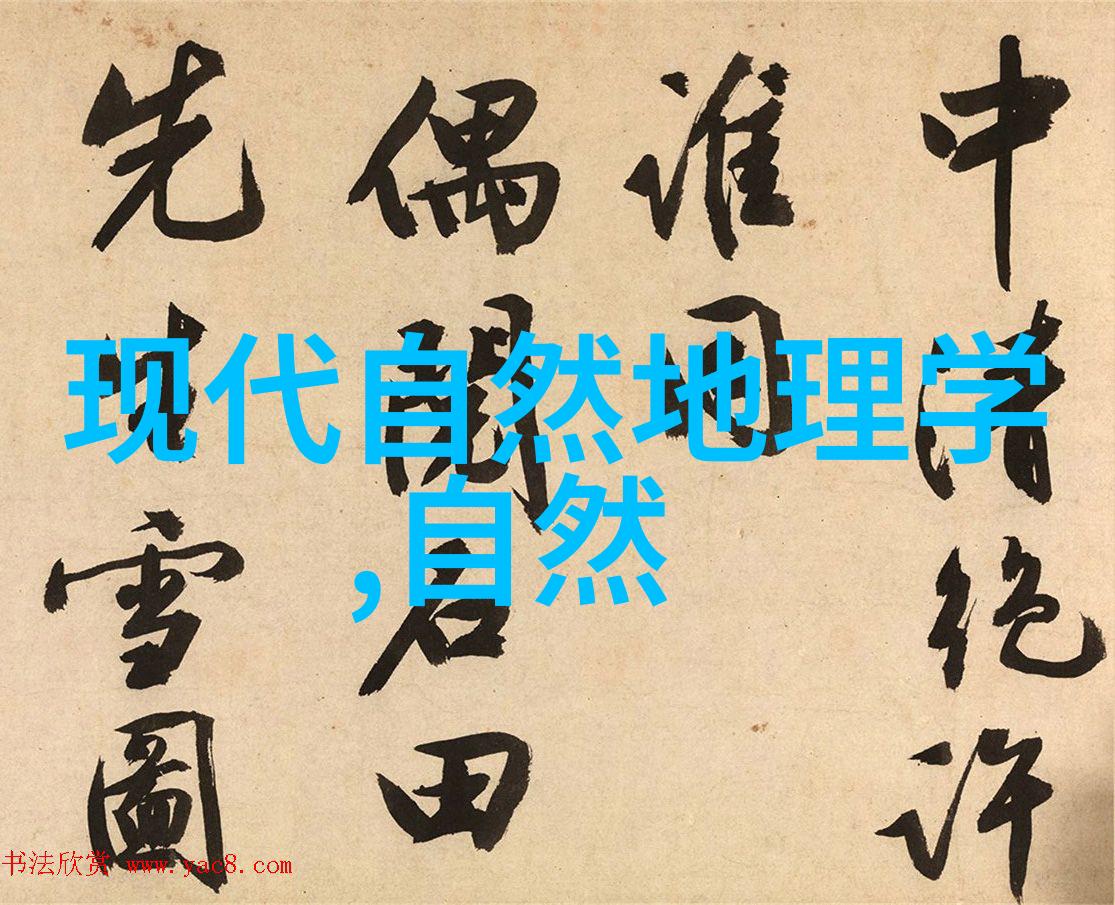 中清絶許
誰同
偶閱石田
先生雪圖
现代自然地理学
,自然
书法欣赏 www.yac8.com